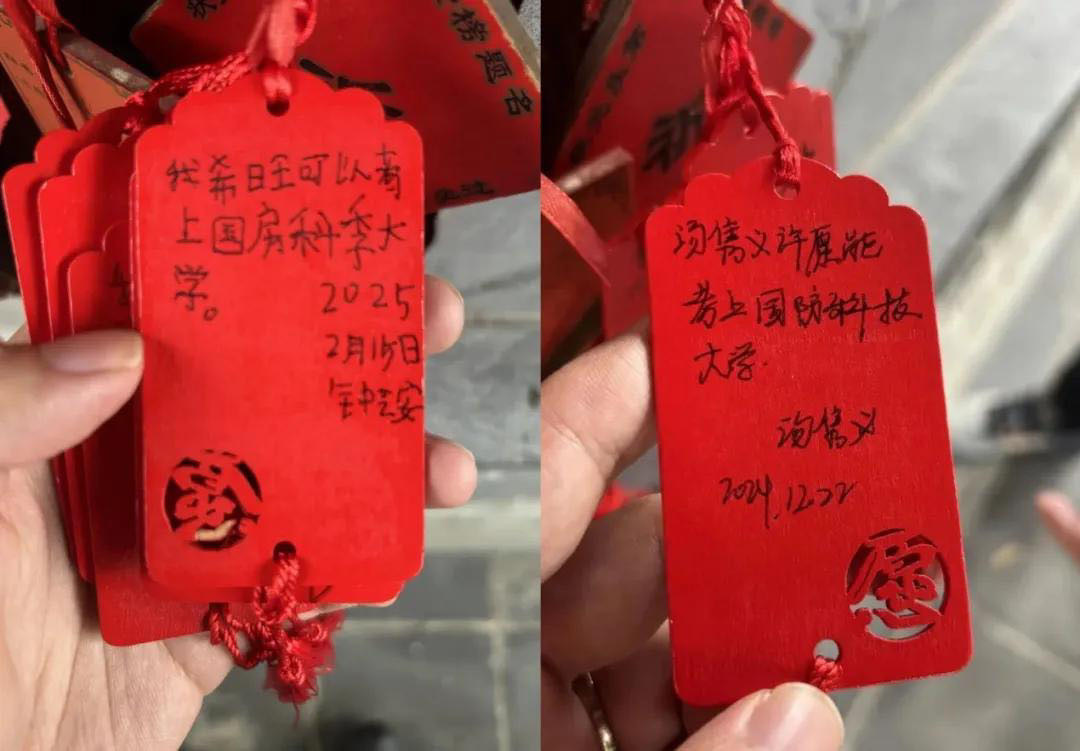 榜题名
我希旺可以考
上国房科季大
学。
2025
2月15日
愿
汤隽义许愿能
考上国防科技
大学.
汤隽义
2024.12.22
愿